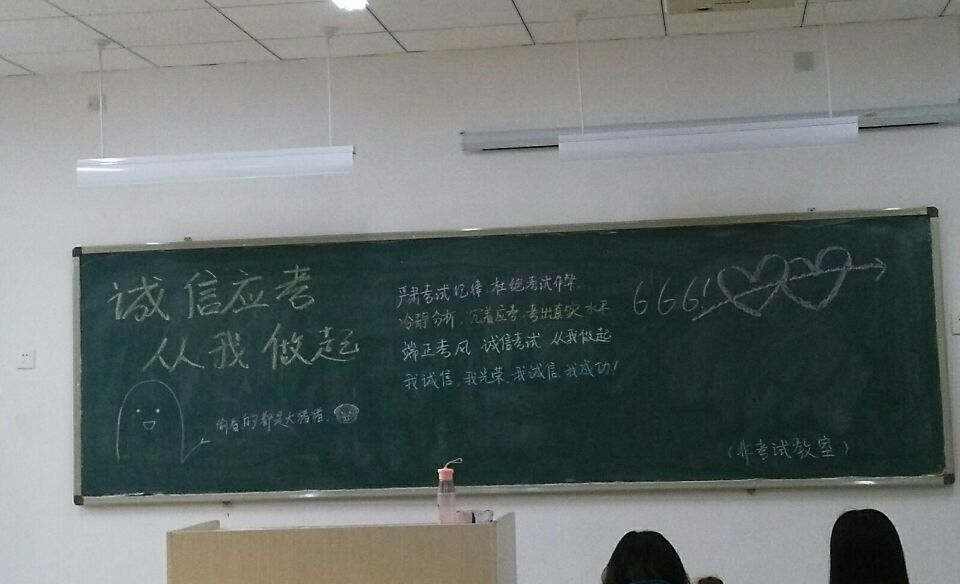 诚信应考
从我做起
偷看的都是大猪猪.
严肃考试纪律.杜绝考试作弊.
冷静分析,沉着应考,考出真实水平
端正考风 诚信考试 从我做起
我诚信,我光荣.我诚信 我成功!
666!
(非考试教室)